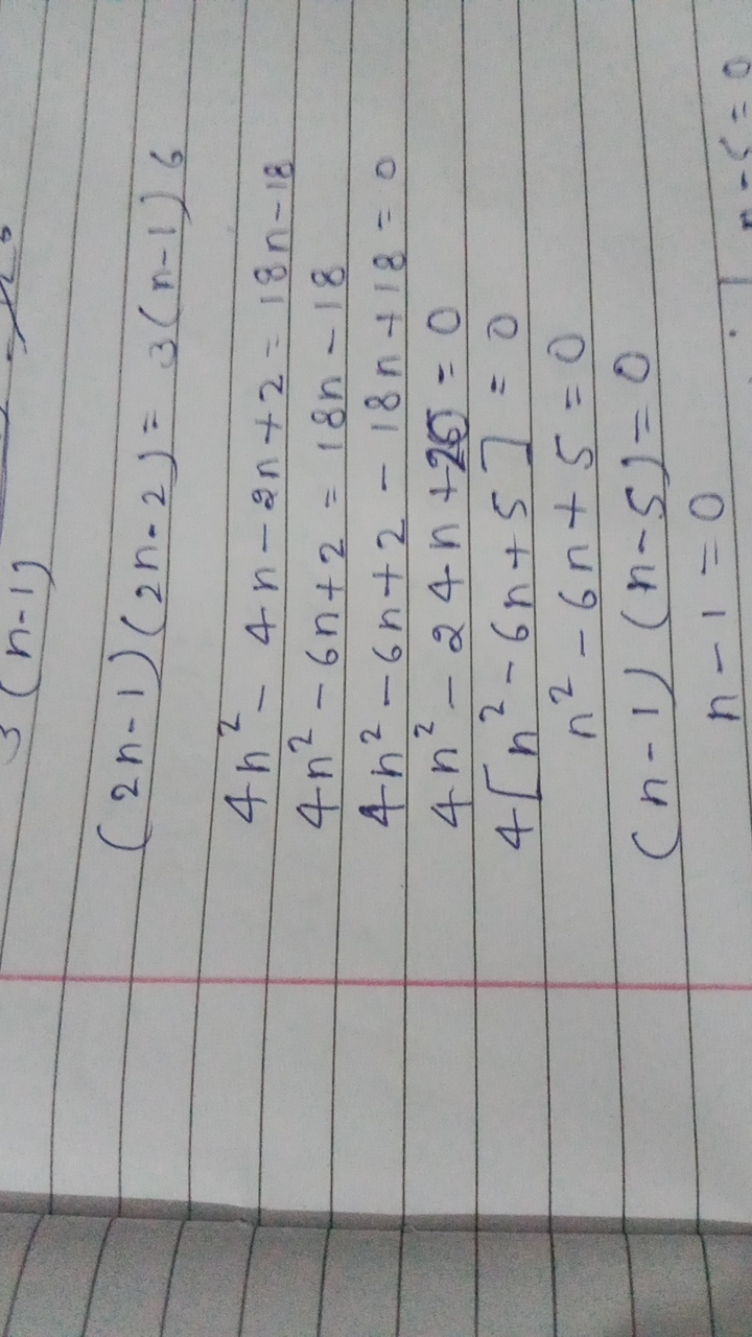 3(n-1)
(2n-1)(2n-2) = 3(n-1)6
4n² - 4n - 2n + 2 = 18n - 18
4n² - 6n + 2 = 18n - 18
4n² - 6n + 2 - 18n + 18 = 0
4n² - 24n + 20 = 0
4[n² - 6n + 5] = 0
n² - 6n + 5 = 0
(n-1)(n-5) = 0
n - 1 = 0 | n - 5 = 0